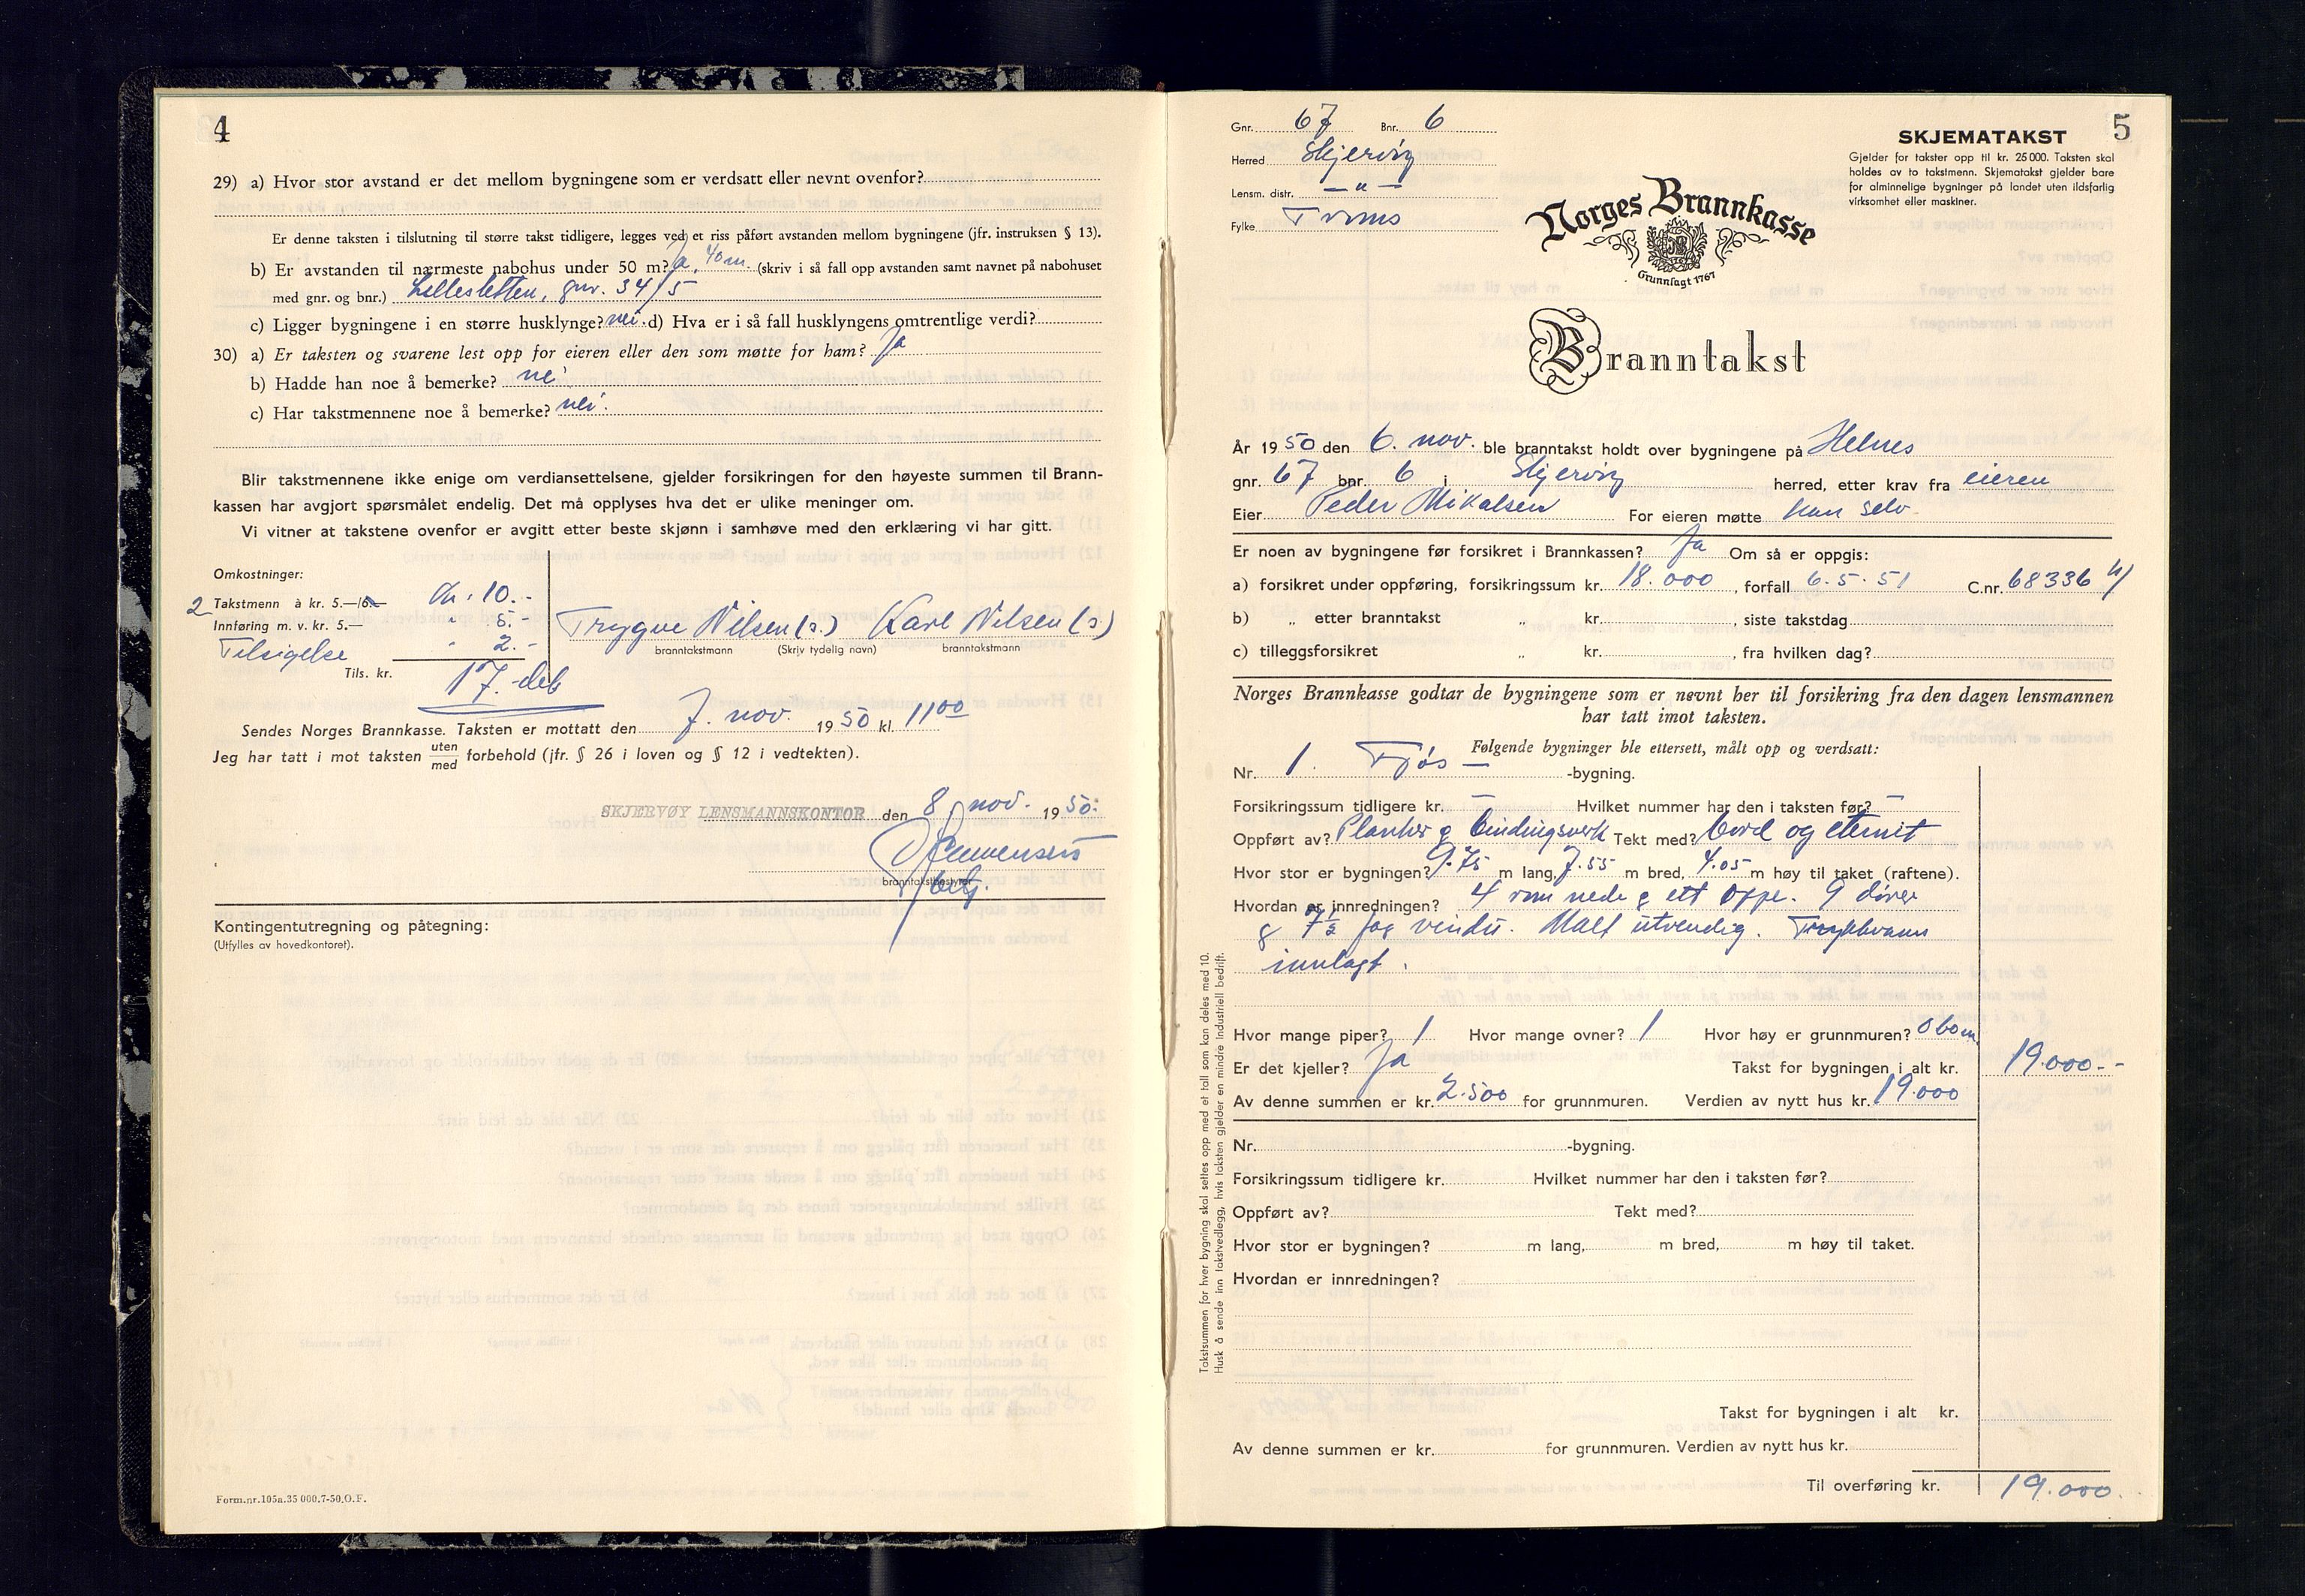 4
29) a) Hvor stor avstand er det mellom bygningene som er verdsatt eller nevnt ovenfor?
Er denne taksten i tilslutning til større takst tidligere, legges ved et riss påført avstanden mellom bygningene (jfr. instruksen § 13).
b) Er avstanden til nærmeste nabohus under 50 m? Ja, 40 m. (skriv i så fall opp avstanden samt navnet på nabohuset
med gnr. og bnr.) Lillesletten, gnr. 34/5
c) Ligger bygningene i en større husklynge? nei. d) Hva er i så fall husklyngens omtrentlige verdi?
30) a) Er taksten og svarene lest opp for eieren eller den som møtte for ham? Ja
b) Hadde han noe å bemerke? nei
c) Har takstmennene noe å bemerke? nei.
Blir takstmennene ikke enige om verdiansettelsene, gjelder forsikringen for den høyeste summen til Brann-
kassen har avgjort spørsmålet endelig. Det må opplyses hva det er ulike meninger om.
Vi vitner at takstene ovenfor er avgitt etter beste skjønn i samhøve med den erklæring vi har gitt.
Omkostninger:
2 Takstmenn à kr. 5.—/6.— kr. 10.-
Innføring m. v. kr. 5.— " 5.-
Tilsigelse " 2.-
Tils. kr. 17.- deb
Trygve Nilsen (s.) Karl Nilsen (s.)
branntakstmann (Skriv tydelig navn) branntakstmann
Sendes Norges Brannkasse. Taksten er mottatt den 7. nov. 1950 kl. 11 00
Jeg har tatt i mot taksten uten/med forbehold (jfr. § 26 i loven og § 12 i vedtekten).
SKJERVØY LENSMANNSKONTOR den 8. nov. 1950.
branntakstbestyrer
betj.
Kontingentutregning og påtegning:
(Utfylles av hovedkontoret).
Form.nr.105a.35 000.7-50.O.F.
5
Gnr. 67 Bnr. 6
Herred Skjervöy
Lensm. distr. — " —
Fylke Troms
SKJEMATAKST
Gjelder for takster opp til kr. 25 000. Taksten skal
holdes av to takstmenn. Skjematakst gjelder bare
for alminnelige bygninger på landet uten ildsfarlig
virksomhet eller maskiner.
Norges Brannkasse
Grunnlagt 1767
Branntakst
År 1950 den 6. nov. ble branntakst holdt over bygningene på Helnes
gnr. 67 bnr. 6 i Skjervöy herred, etter krav fra eieren
Eier Peder Mikalsen For eieren møtte han selv
Er noen av bygningene før forsikret i Brannkassen? Ja Om så er oppgis:
a) forsikret under oppføring, forsikringssum kr. 18.000, forfall 6.5.51 C.nr. 68336
b) „ etter branntakst „ kr. , siste takstdag
c) tilleggsforsikret „ kr. , fra hvilken dag?
Norges Brannkasse godtar de bygningene som er nevnt her til forsikring fra den dagen lensmannen
har tatt imot taksten.
Følgende bygninger ble ettersett, målt opp og verdsatt:
Nr. 1. Fjös — -bygning.
Forsikringssum tidligere kr. — Hvilket nummer har den i taksten før? —
Oppført av? Planker & bindingsverk Tekt med? bord og eternit
Hvor stor er bygningen? 9.75 m lang, 7.55 m bred, 4.05 m høy til taket (raftene).
Hvordan er innredningen? 4 rom nede & ett oppe. 9 dörer
& 7½ fag vindu. Malt utvendig. Trykkvann
innlagt.
Hvor mange piper? 1 Hvor mange ovner? 1 Hvor høy er grunnmuren? 0 60 m.
Er det kjeller? Ja Takst for bygningen i alt kr. 19.000.-
Av denne summen er kr. 2.500 for grunnmuren. Verdien av nytt hus kr. 19.000
Nr. -bygning.
Forsikringssum tidligere kr. Hvilket nummer har den i taksten før?
Oppført av? Tekt med?
Hvor stor er bygningen? m lang, m bred, m høy til taket.
Hvordan er innredningen?
Takst for bygningen i alt kr.
Av denne summen er kr. for grunnmuren. Verdien av nytt hus kr.
Til overføring kr. 19.000.
Takstsummen for hver bygning skal settes opp med et tall som kan deles med 10.
Husk å sende inn takstvedlegg, hvis taksten gjelder en mindre industriell bedrift.